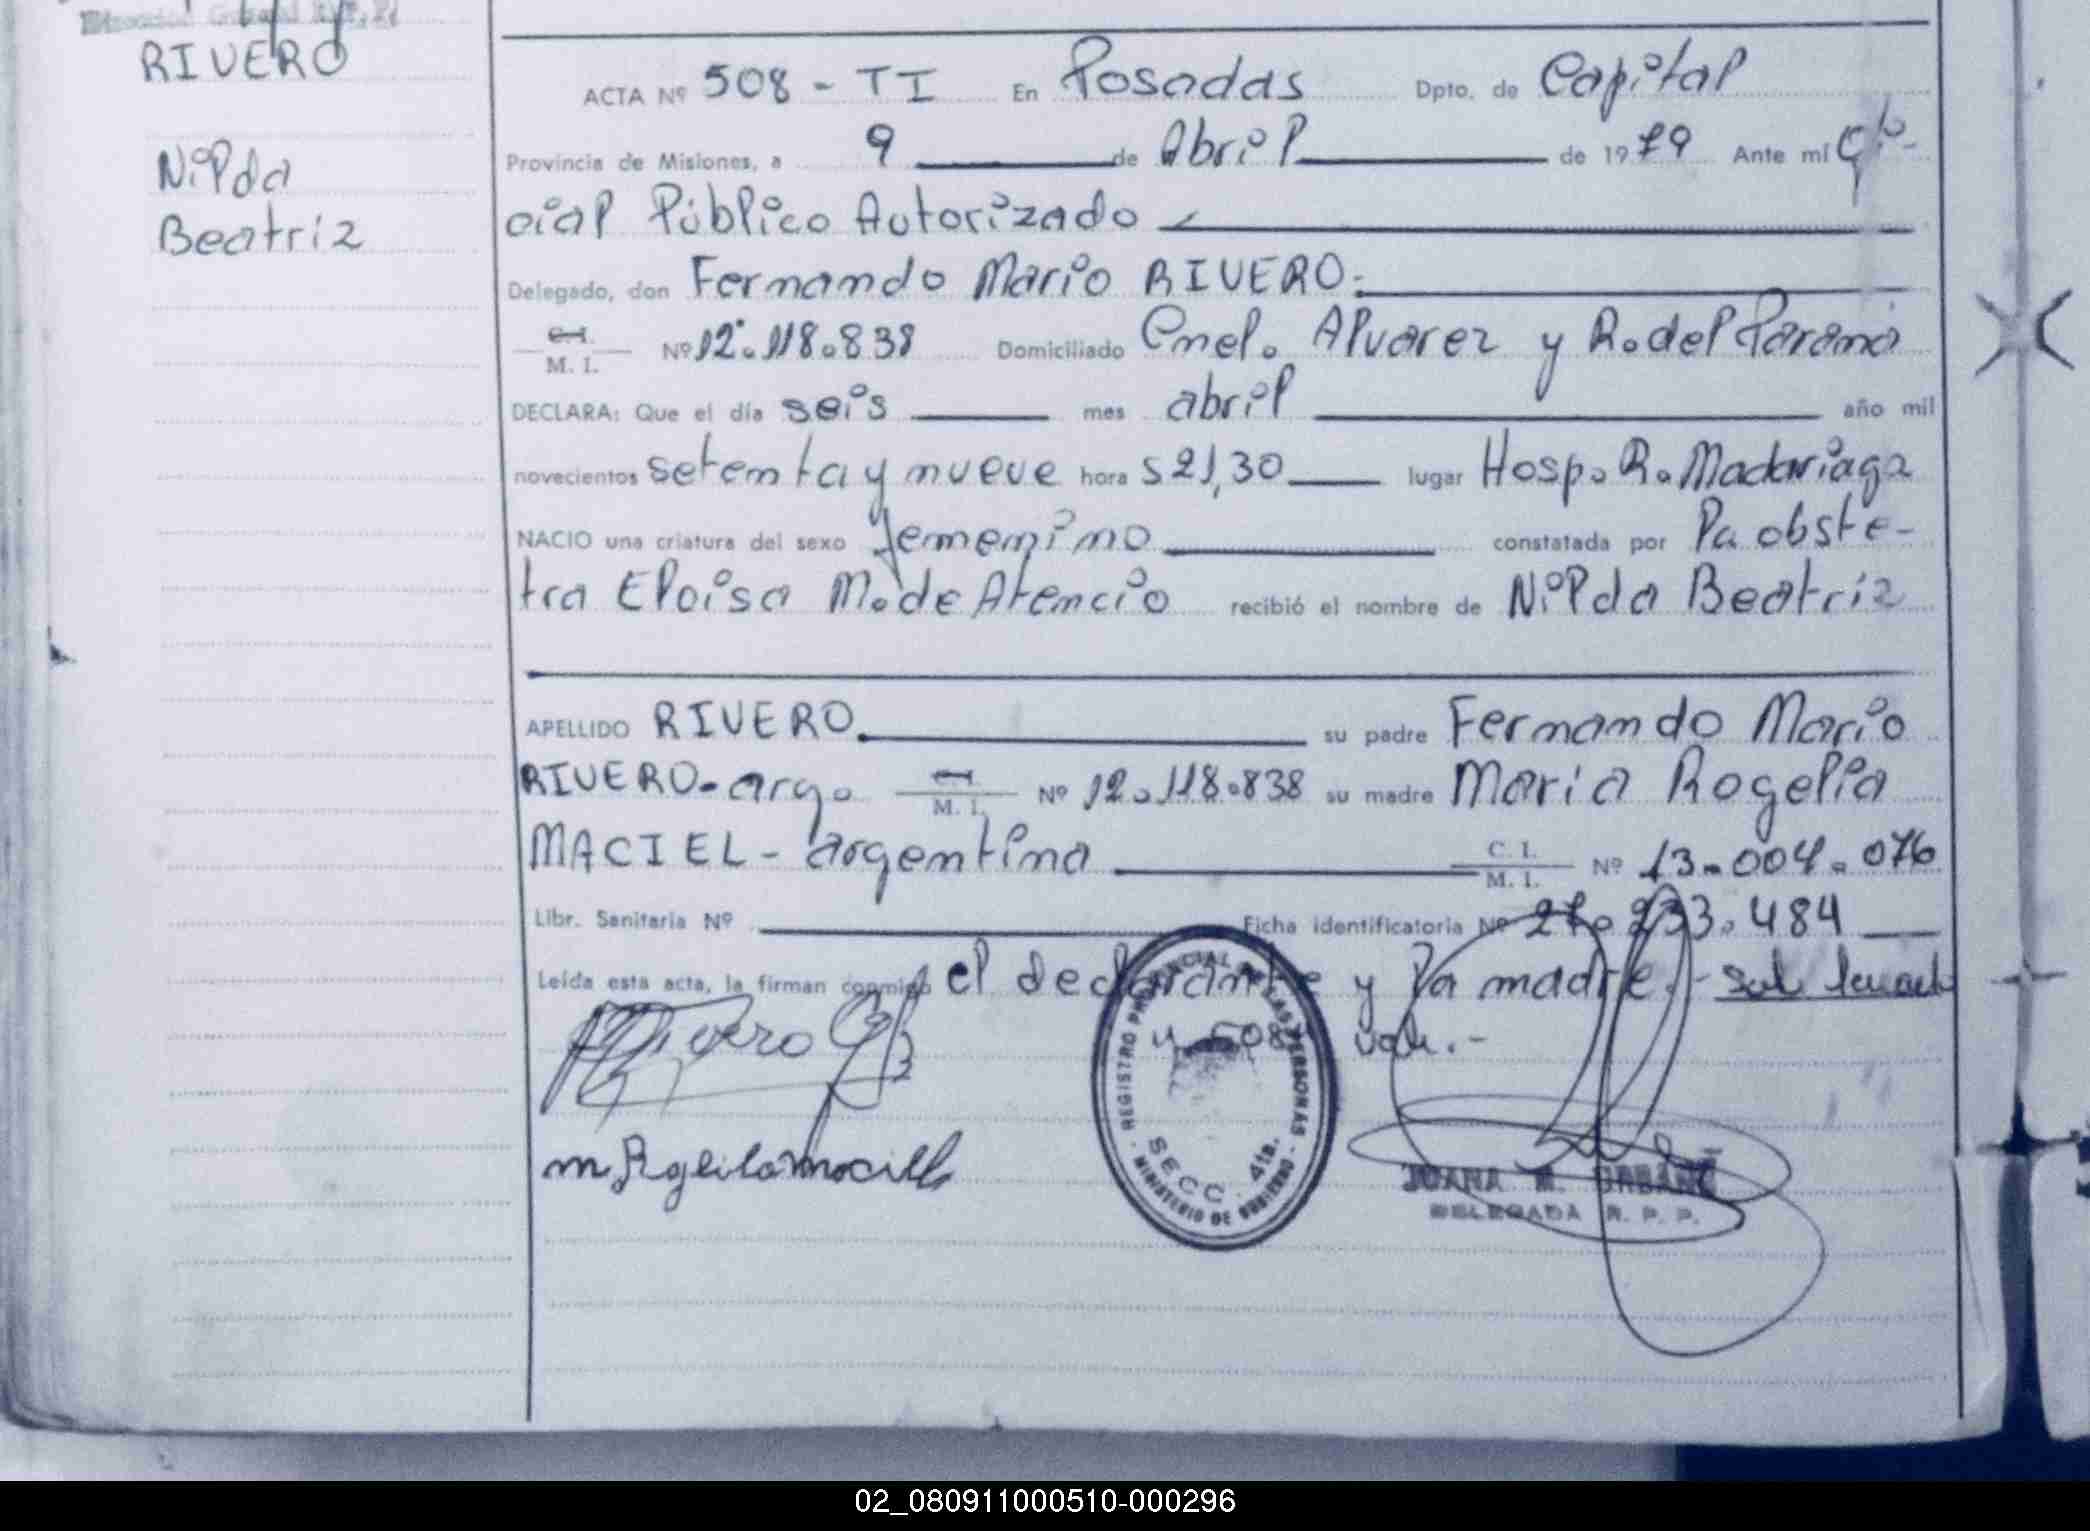 Dirección General R.P.P.
RIVERO
Nilda
Beatriz
ACTA Nº 508 - TI En Posadas Dpto. de Capital
Provincia de Misiones, a 9 de Abril de 1979 Ante mí Ofi-
cial Público Autorizado
Delegado, don Fernando Mario RIVERO.
C.I. M. I. Nº 12.118.838 Domiciliado Cnel. Alvarez y R. del Paraná
DECLARA: Que el día seis mes abril año mil
novecientos setenta y nueve hora s 21,30 lugar Hosp. R. Madariaga
NACIO una criatura del sexo femenino constatada por la obste-
tra Eloisa M. de Atencio recibió el nombre de Nilda Beatriz
APELLIDO RIVERO. su padre Fernando Mario
RIVERO- arg. C.I. M. I. Nº 12.118.838 su madre María Rogelia
MACIEL - argentina C. I. M. I. Nº 13.004.076
Libr. Sanitaria Nº Ficha identificatoria Nº 27.233.484
Leída esta acta, la firman conmigo el declarante y la madre.-
vale.-
REGISTRO PROVINCIAL DE LAS PERSONAS
SECC. 4ta.
MINISTERIO DE GOBIERNO
JUANA M.
DELEGADA R. P. P.
02_080911000510-000296